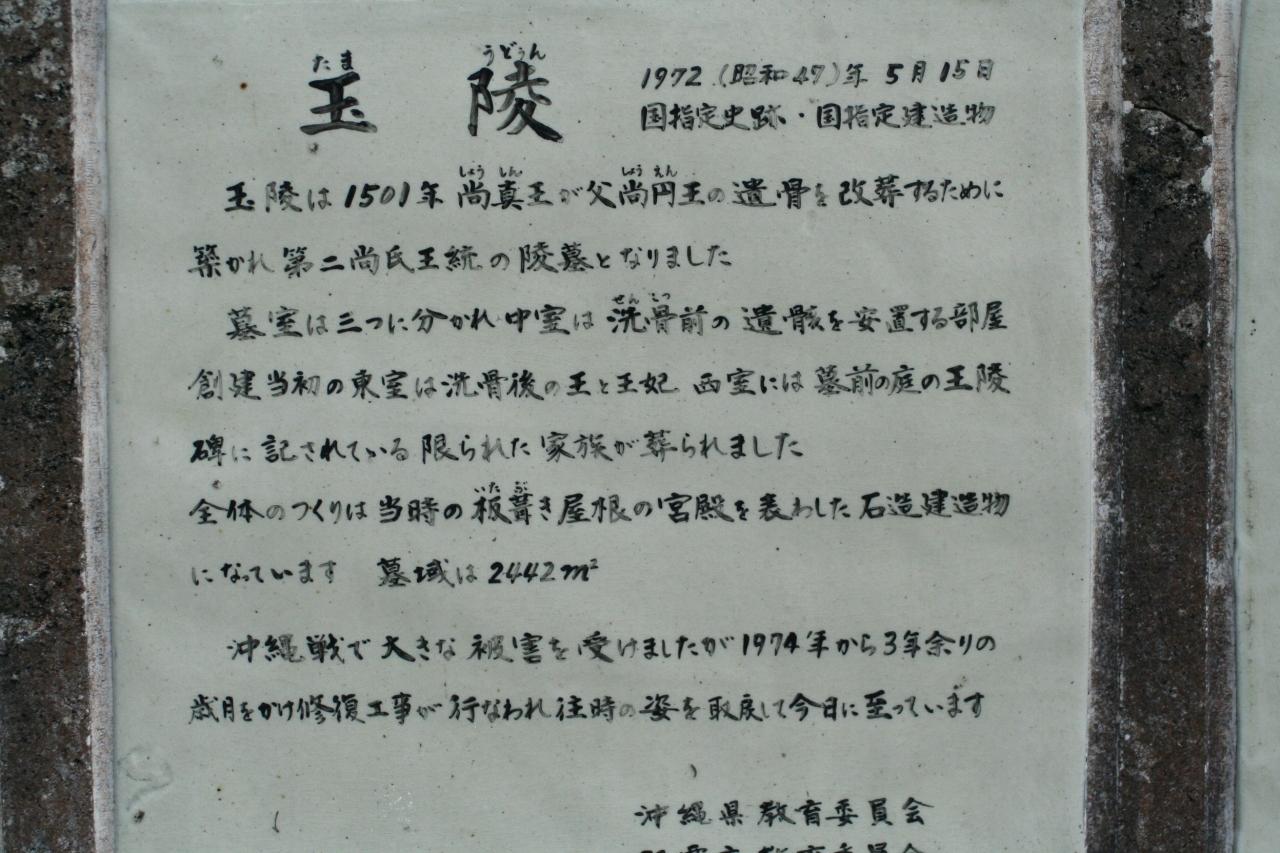 玉陵
たま うどぅん
1972(昭和47)年5月15日
国指定史跡・国指定建造物
玉陵は1501年尚真王が父尚円王の遺骨を改葬するために
しょう しん しょう えん
築かれ第二尚氏王統の陵墓となりました
墓室は三つに分かれ中室は洗骨前の遺骸を安置する部屋
せん こつ
創建当初の東室は洗骨後の王と王妃 西室には墓前の庭の玉陵
碑に記されている限られた家族が葬られました
全体のつくりは当時の板葺き屋根の宮殿を表わした石造建造物
いた ぶ
になっています 墓域は2442m²
沖縄戦で大きな被害を受けましたが1974年から3年余りの
歳月をかけ修復工事が行なわれ往時の姿を取戻して今日に至っています
沖縄県教育委員会